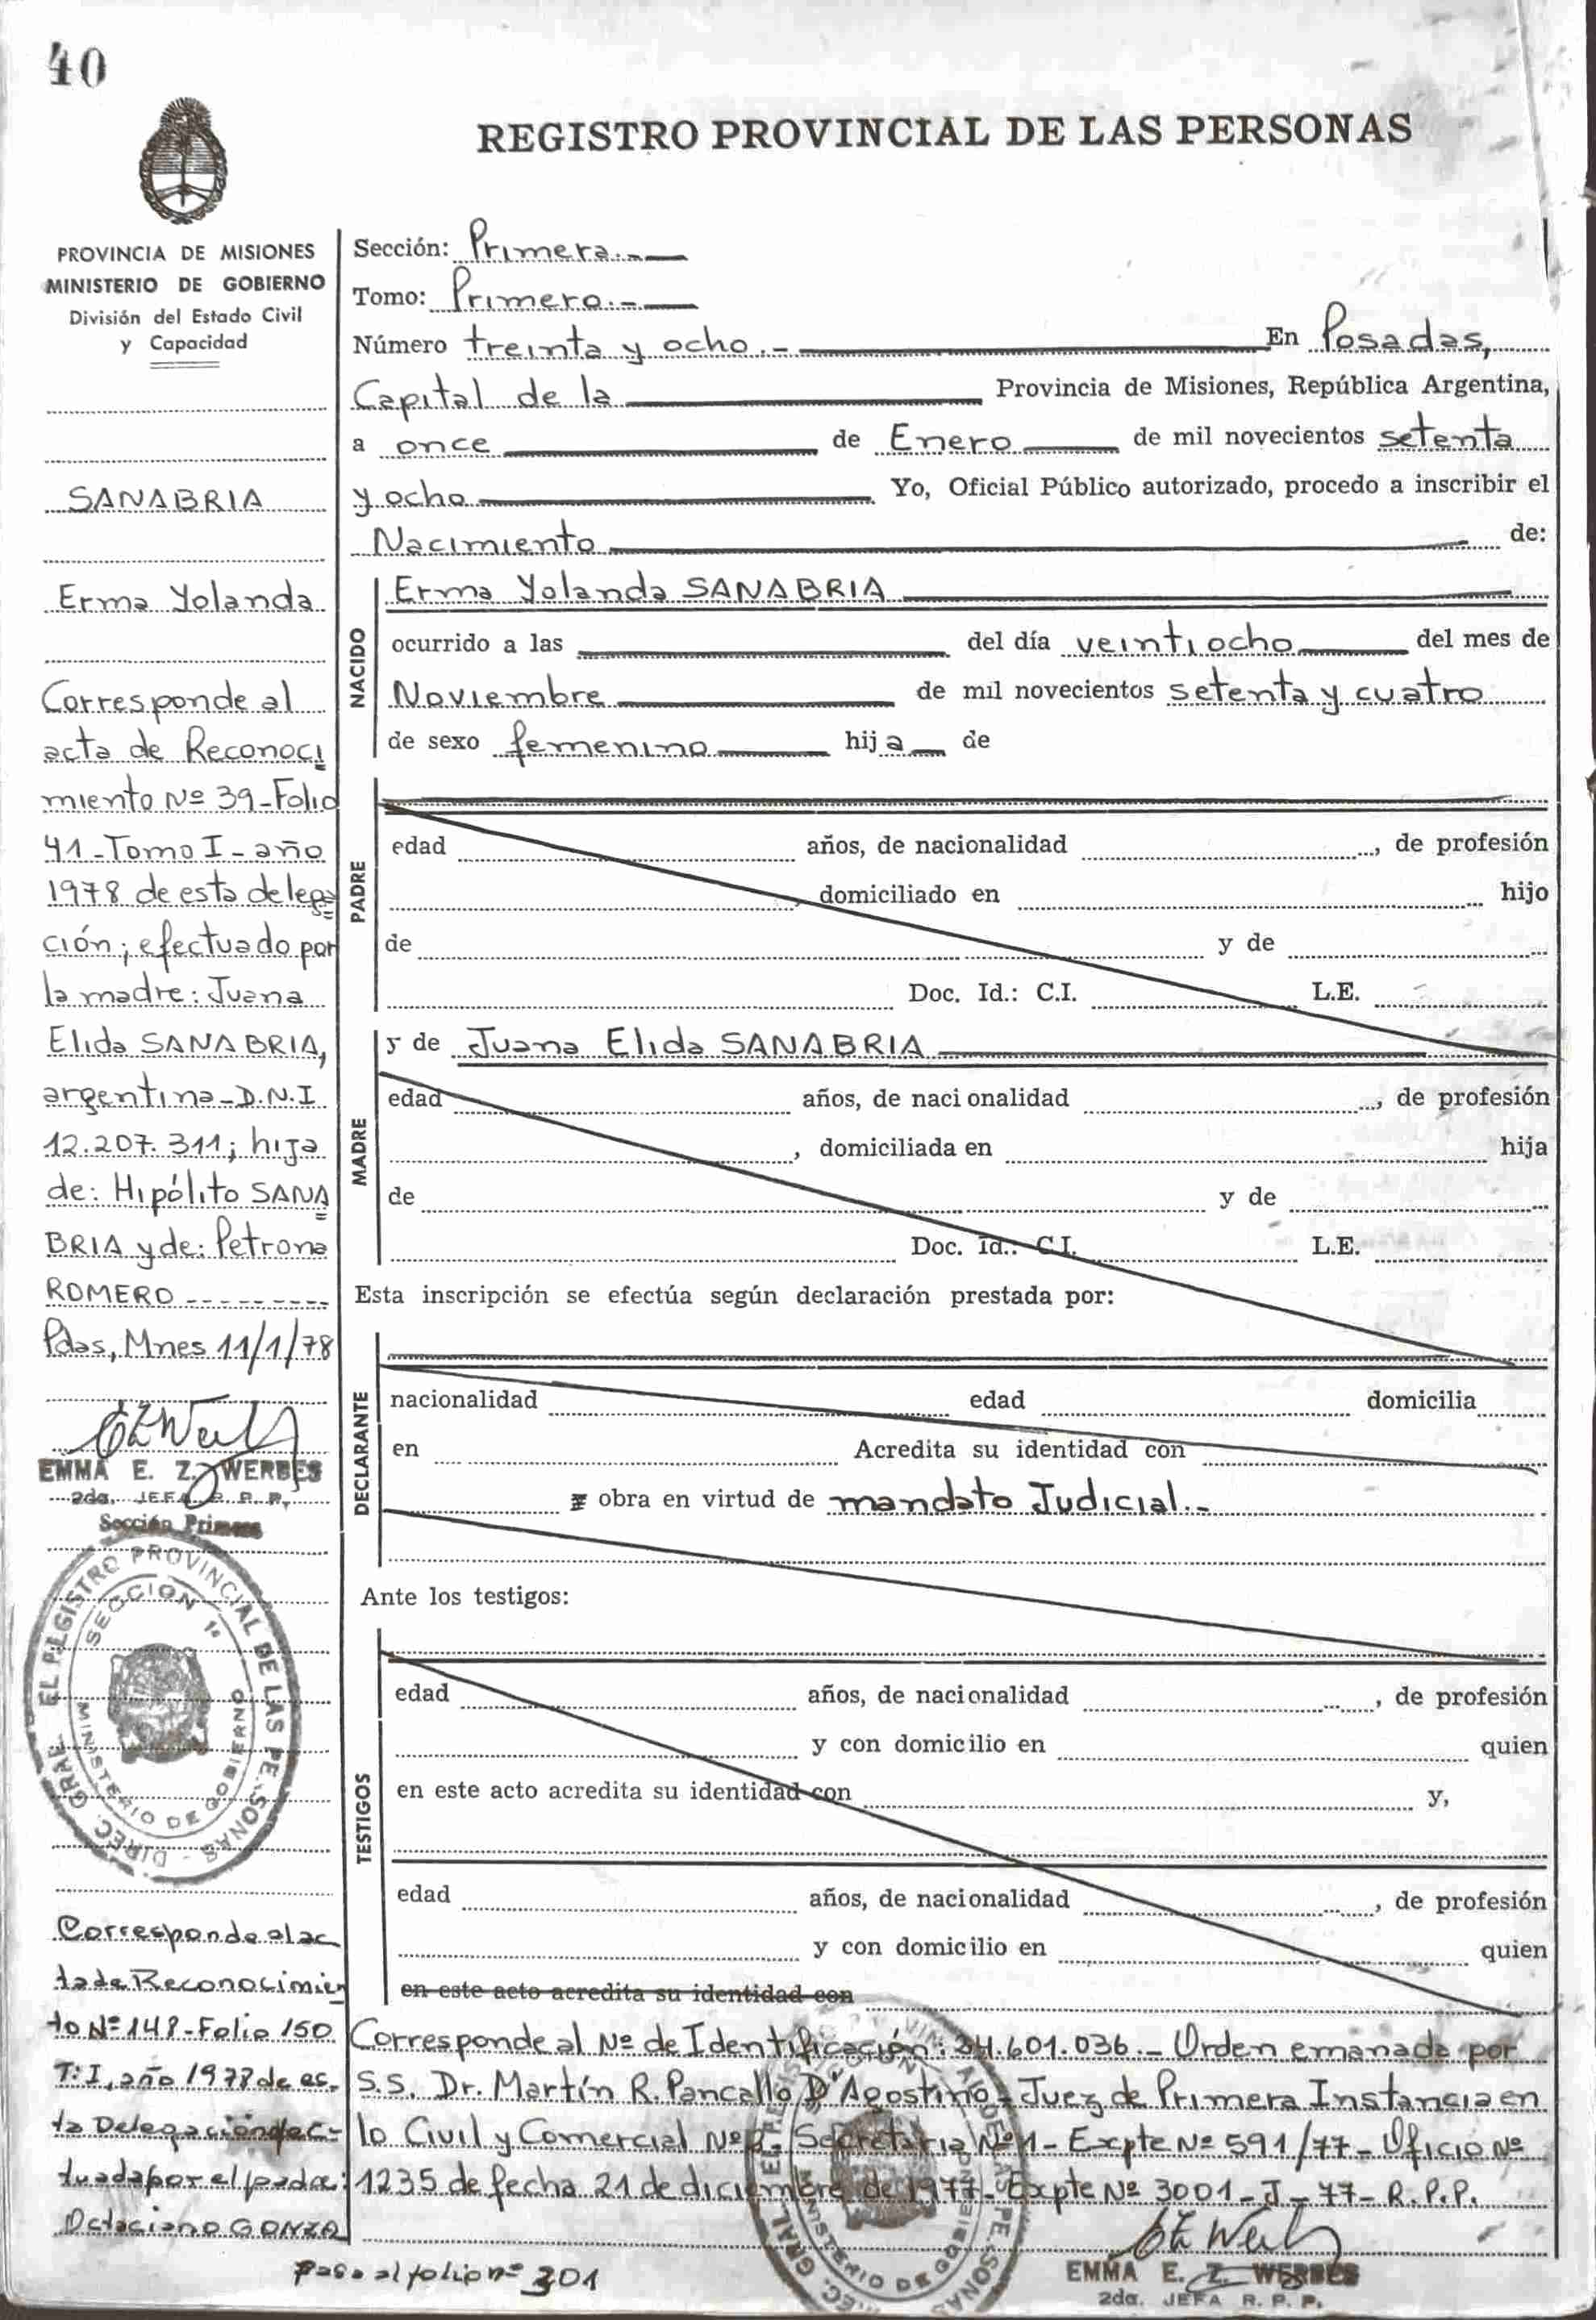 40
REGISTRO PROVINCIAL DE LAS PERSONAS
PROVINCIA DE MISIONES
MINISTERIO DE GOBIERNO
División del Estado Civil
y Capacidad
SANABRIA
Erma Yolanda
Corresponde al
acta de Reconoci
miento Nº 39-Folio
41-Tomo I-año
1978 de esta delega
ción; efectuado por
la madre: Juana
Elida SANABRIA,
argentina-D.N.I
12.207.311; hija
de: Hipólito SANA
BRIA y de: Petrona
ROMERO ---------
Pdas, Mnes 11/1/78
EMMA E. Z. WERBES
2da. JEFA R. P. P.
Sección Primera
DIREC. GRAL. EL REGISTRO PROVINCIAL DE LAS PERSONAS
SECCION 1ª
MINISTERIO DE GOBIERNO
Corresponde al ac
ta de Reconocimien
to Nº 148-Folio 150
T: I, año 1977 de es-
ta Delegación efec-
tuada por el padre:
Octaciano GONZA
Sección: Primera.-
Tomo: Primero.-
Número treinta y ocho.- En Posadas,
Capital de la Provincia de Misiones, República Argentina,
a once de Enero de mil novecientos setenta
y ocho Yo, Oficial Público autorizado, procedo a inscribir el
Nacimiento de:
NACIDO
Erma Yolanda SANABRIA
ocurrido a las del día veintiocho del mes de
Noviembre de mil novecientos setenta y cuatro
de sexo femenino hija de
PADRE
edad años, de nacionalidad , de profesión
domiciliado en hijo
de y de
Doc. Id.: C.I. L.E.
MADRE
y de Juana Elida SANABRIA
edad años, de nacionalidad , de profesión
, domiciliada en hija
de y de
Doc. Id.: C.I. L.E.
Esta inscripción se efectúa según declaración prestada por:
DECLARANTE
nacionalidad edad domicilia
en Acredita su identidad con
obra en virtud de mandato Judicial.-
Ante los testigos:
TESTIGOS
edad años, de nacionalidad , de profesión
y con domicilio en quien
en este acto acredita su identidad con y,
edad años, de nacionalidad , de profesión
y con domicilio en quien
en este acto acredita su identidad con
Corresponde al Nº de Identificación: 24.601.036.- Orden emanada por
S.S. Dr. Martín R. Pancallo D'Agostino-Juez de Primera Instancia en
lo Civil y Comercial Nº 2- Secretaria Nº 1- Expte Nº 591/77- Oficio Nº
1235 de fecha 21 de diciembre de 1977- Expte Nº 3001-J-77- R.P.P.
EMMA E. Z. WERBES
2da. JEFA R. P. P.
Pasa al folio nº 201